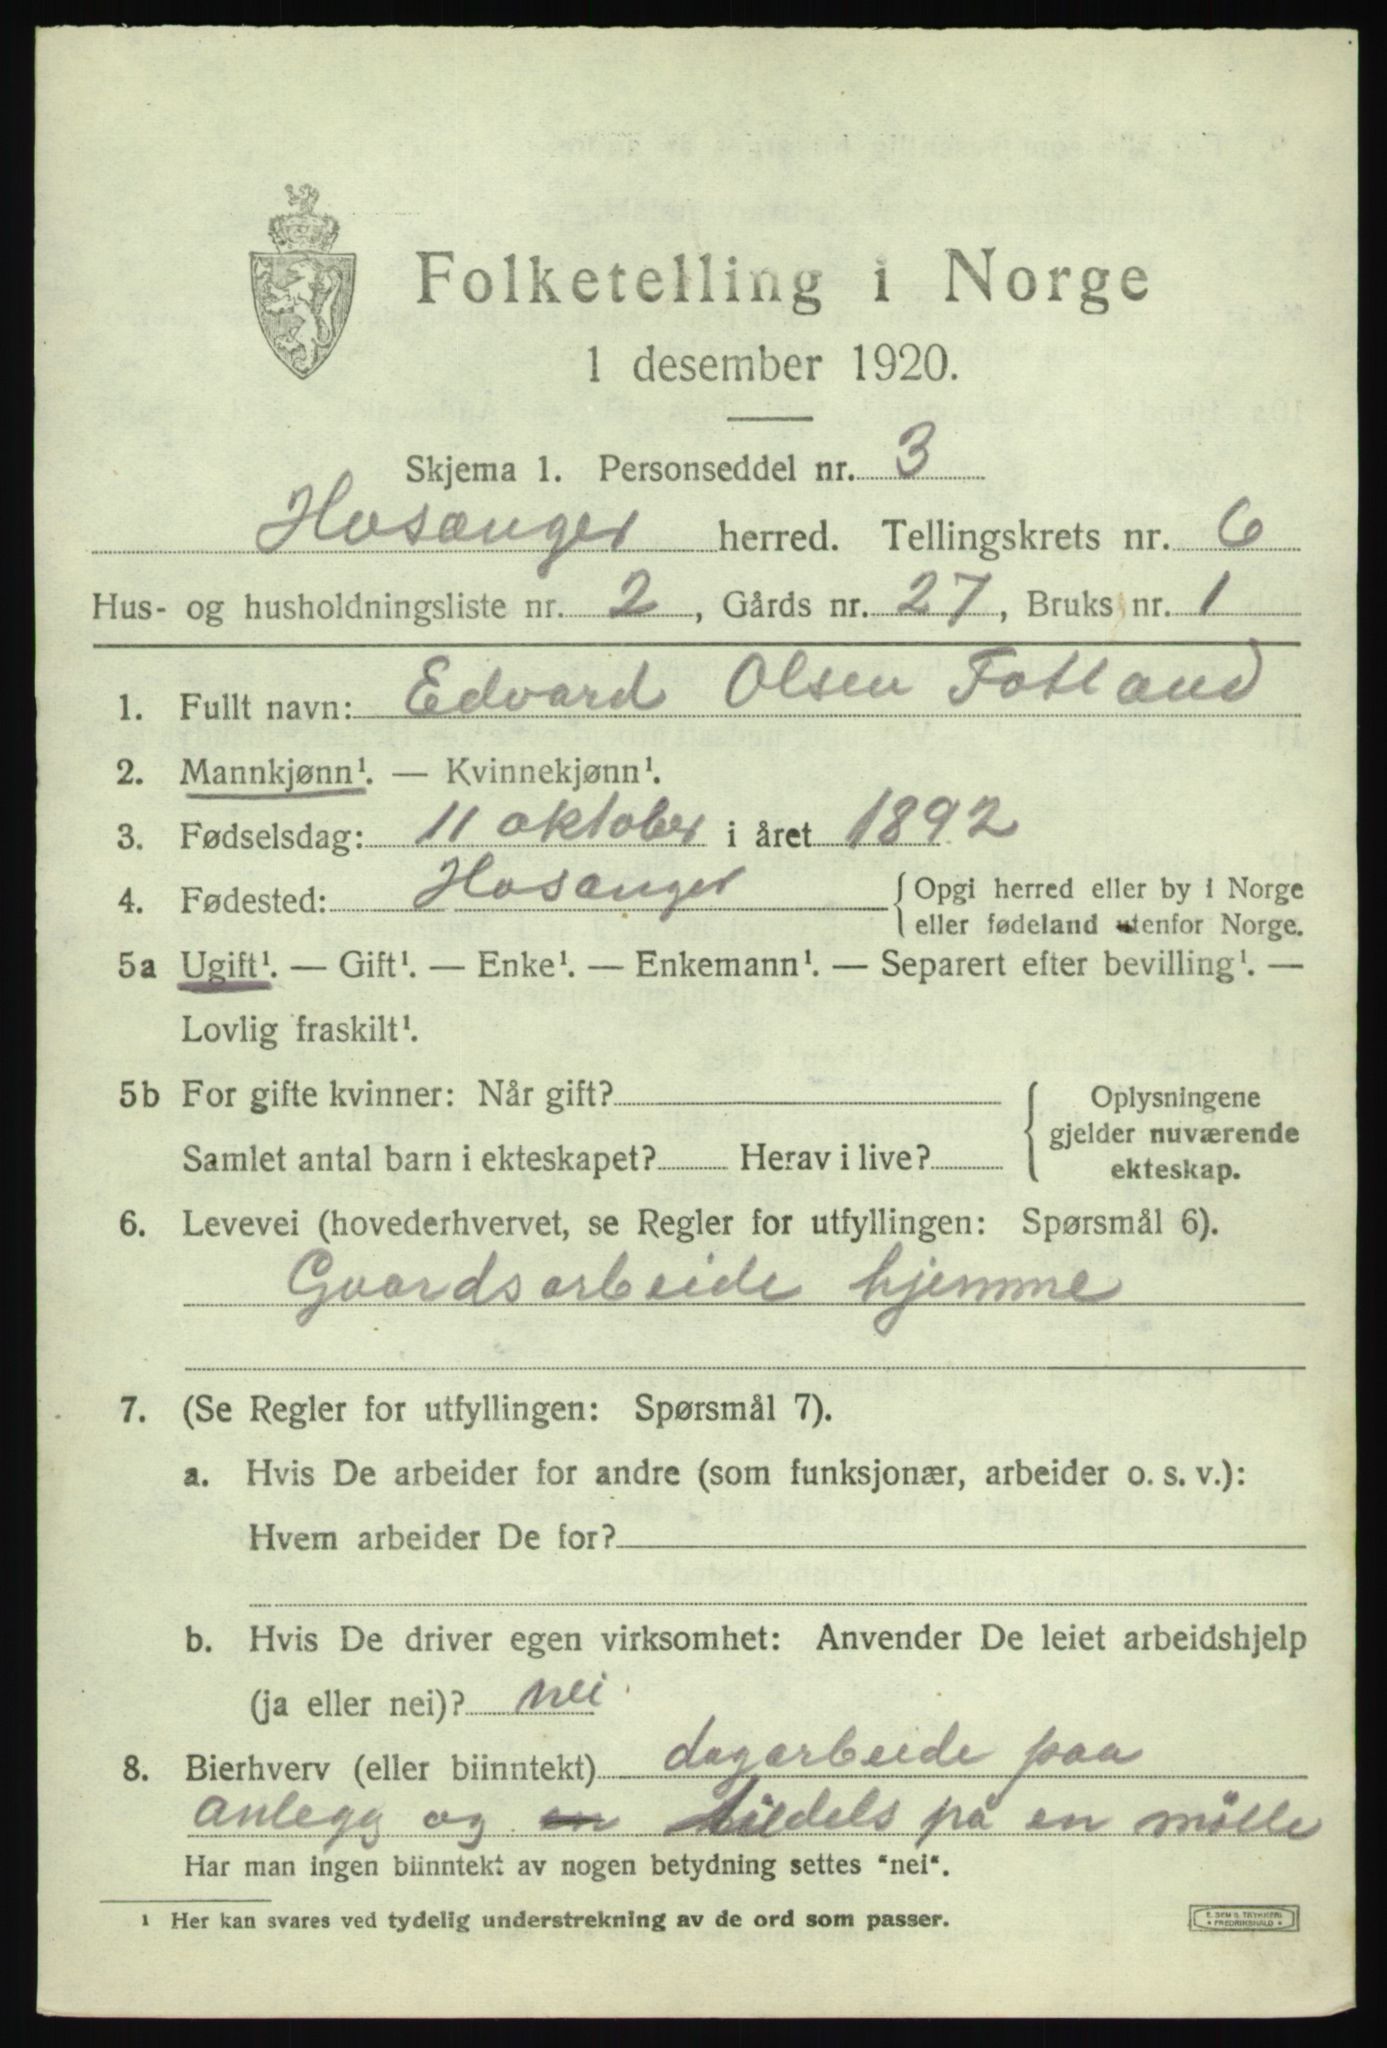 Folketelling i Norge
1 desember 1920.
Skjema 1. Personseddel nr. 3
Hosanger herred. Tellingskrets nr. 6
Hus- og husholdningsliste nr. 2, Gårds nr. 27, Bruks nr. 1
1. Fullt navn: Edvard Olsen Fotland
2. Mannkjønn¹. — Kvinnekjønn¹.
3. Fødselsdag: 11 oktober i året 1892
4. Fødested: Hosanger { Opgi herred eller by i Norge
eller fødeland utenfor Norge.
5a Ugift¹. — Gift¹. — Enke¹. — Enkemann¹. — Separert efter bevilling¹. —
Lovlig fraskilt¹.
5b For gifte kvinner: Når gift? { Oplysningene
gjelder nuværende
Samlet antal barn i ekteskapet? Herav i live?
ekteskap.
6. Levevei (hovederhvervet, se Regler for utfyllingen: Spørsmål 6).
Gaardsarbeide hjemme
7. (Se Regler for utfyllingen: Spørsmål 7).
a. Hvis De arbeider for andre (som funksjonær, arbeider o. s. v.):
Hvem arbeider De for?
b. Hvis De driver egen virksomhet: Anvender De leiet arbeidshjelp
(ja eller nei)? nei
8. Bierhverv (eller biinntekt) dagarbeide paa
anlegg og en tildels på en mølle
Har man ingen biinntekt av nogen betydning settes "nei".
¹ Her kan svares ved tydelig understrekning av de ord som passer.
E. SEM S. TRYKKERI
• FREDRIKSHALD •